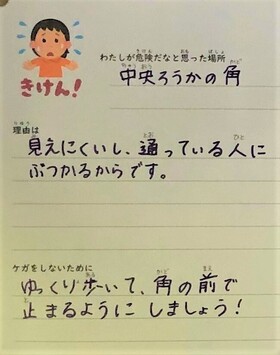 きけん!
わたしが危険だなと思った場所
中央ろうかの角
理由は
見えにくいし、通っている人に
ぶつかるからです。
ケガをしないために
ゆっくり歩いて、角の前で
止まるようにしましょう!